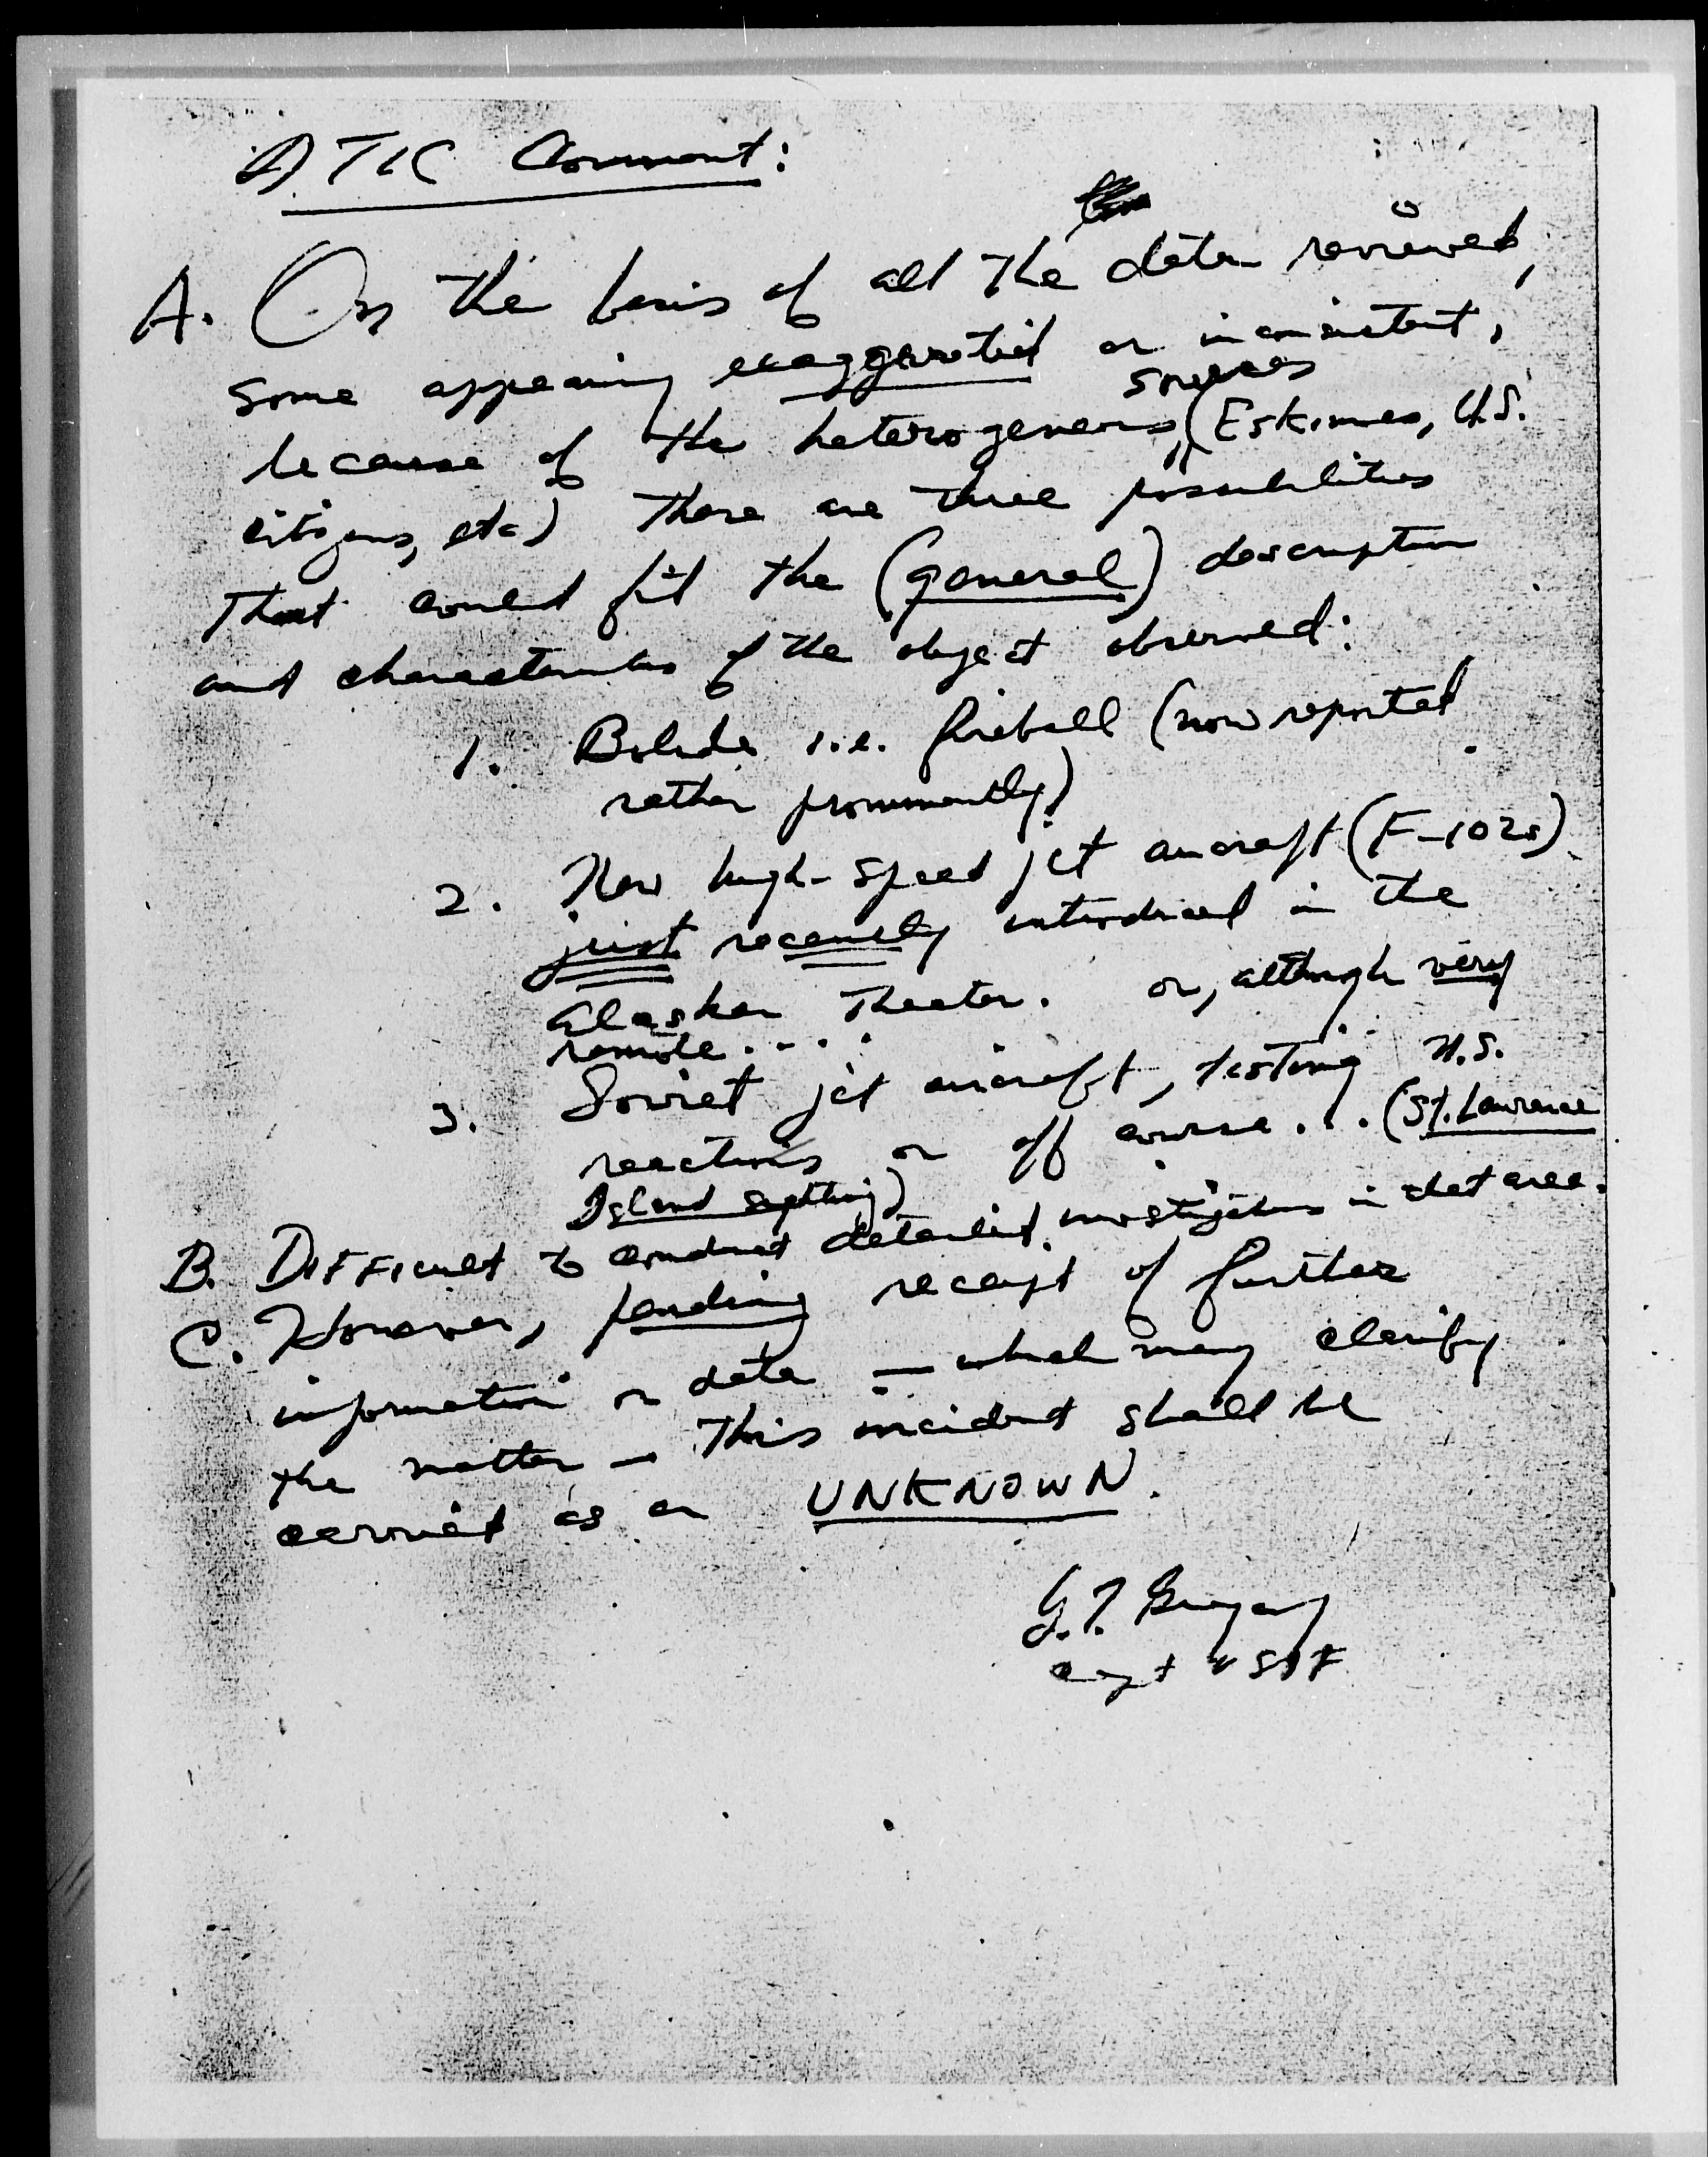 ATIC Comment:
A. On the basis of all the data reviewed,
some appearing exaggerated or inconsistent,
because of the heterogeneous sources (Eskimos, U.S.
citizens, etc) there are three possibilities
that could fit the (general) description
and characteristics of the object observed:
1. Bolide i.e. fireball (now reported
rather prominently)
2. New high-speed jet aircraft (F-102s)
just recently introduced in the
Alaskan Theater. or, although very
remote....
3. Soviet jet aircraft, testing U.S.
reactions or off course... (St. Lawrence
Island sighting)
B. Difficult to conduct detailed investigations in that area.
C. However, pending receipt of further
information or data — which may clarify
the matter — this incident shall be
carried as an UNKNOWN.
G.T. Gregory
Capt USAF